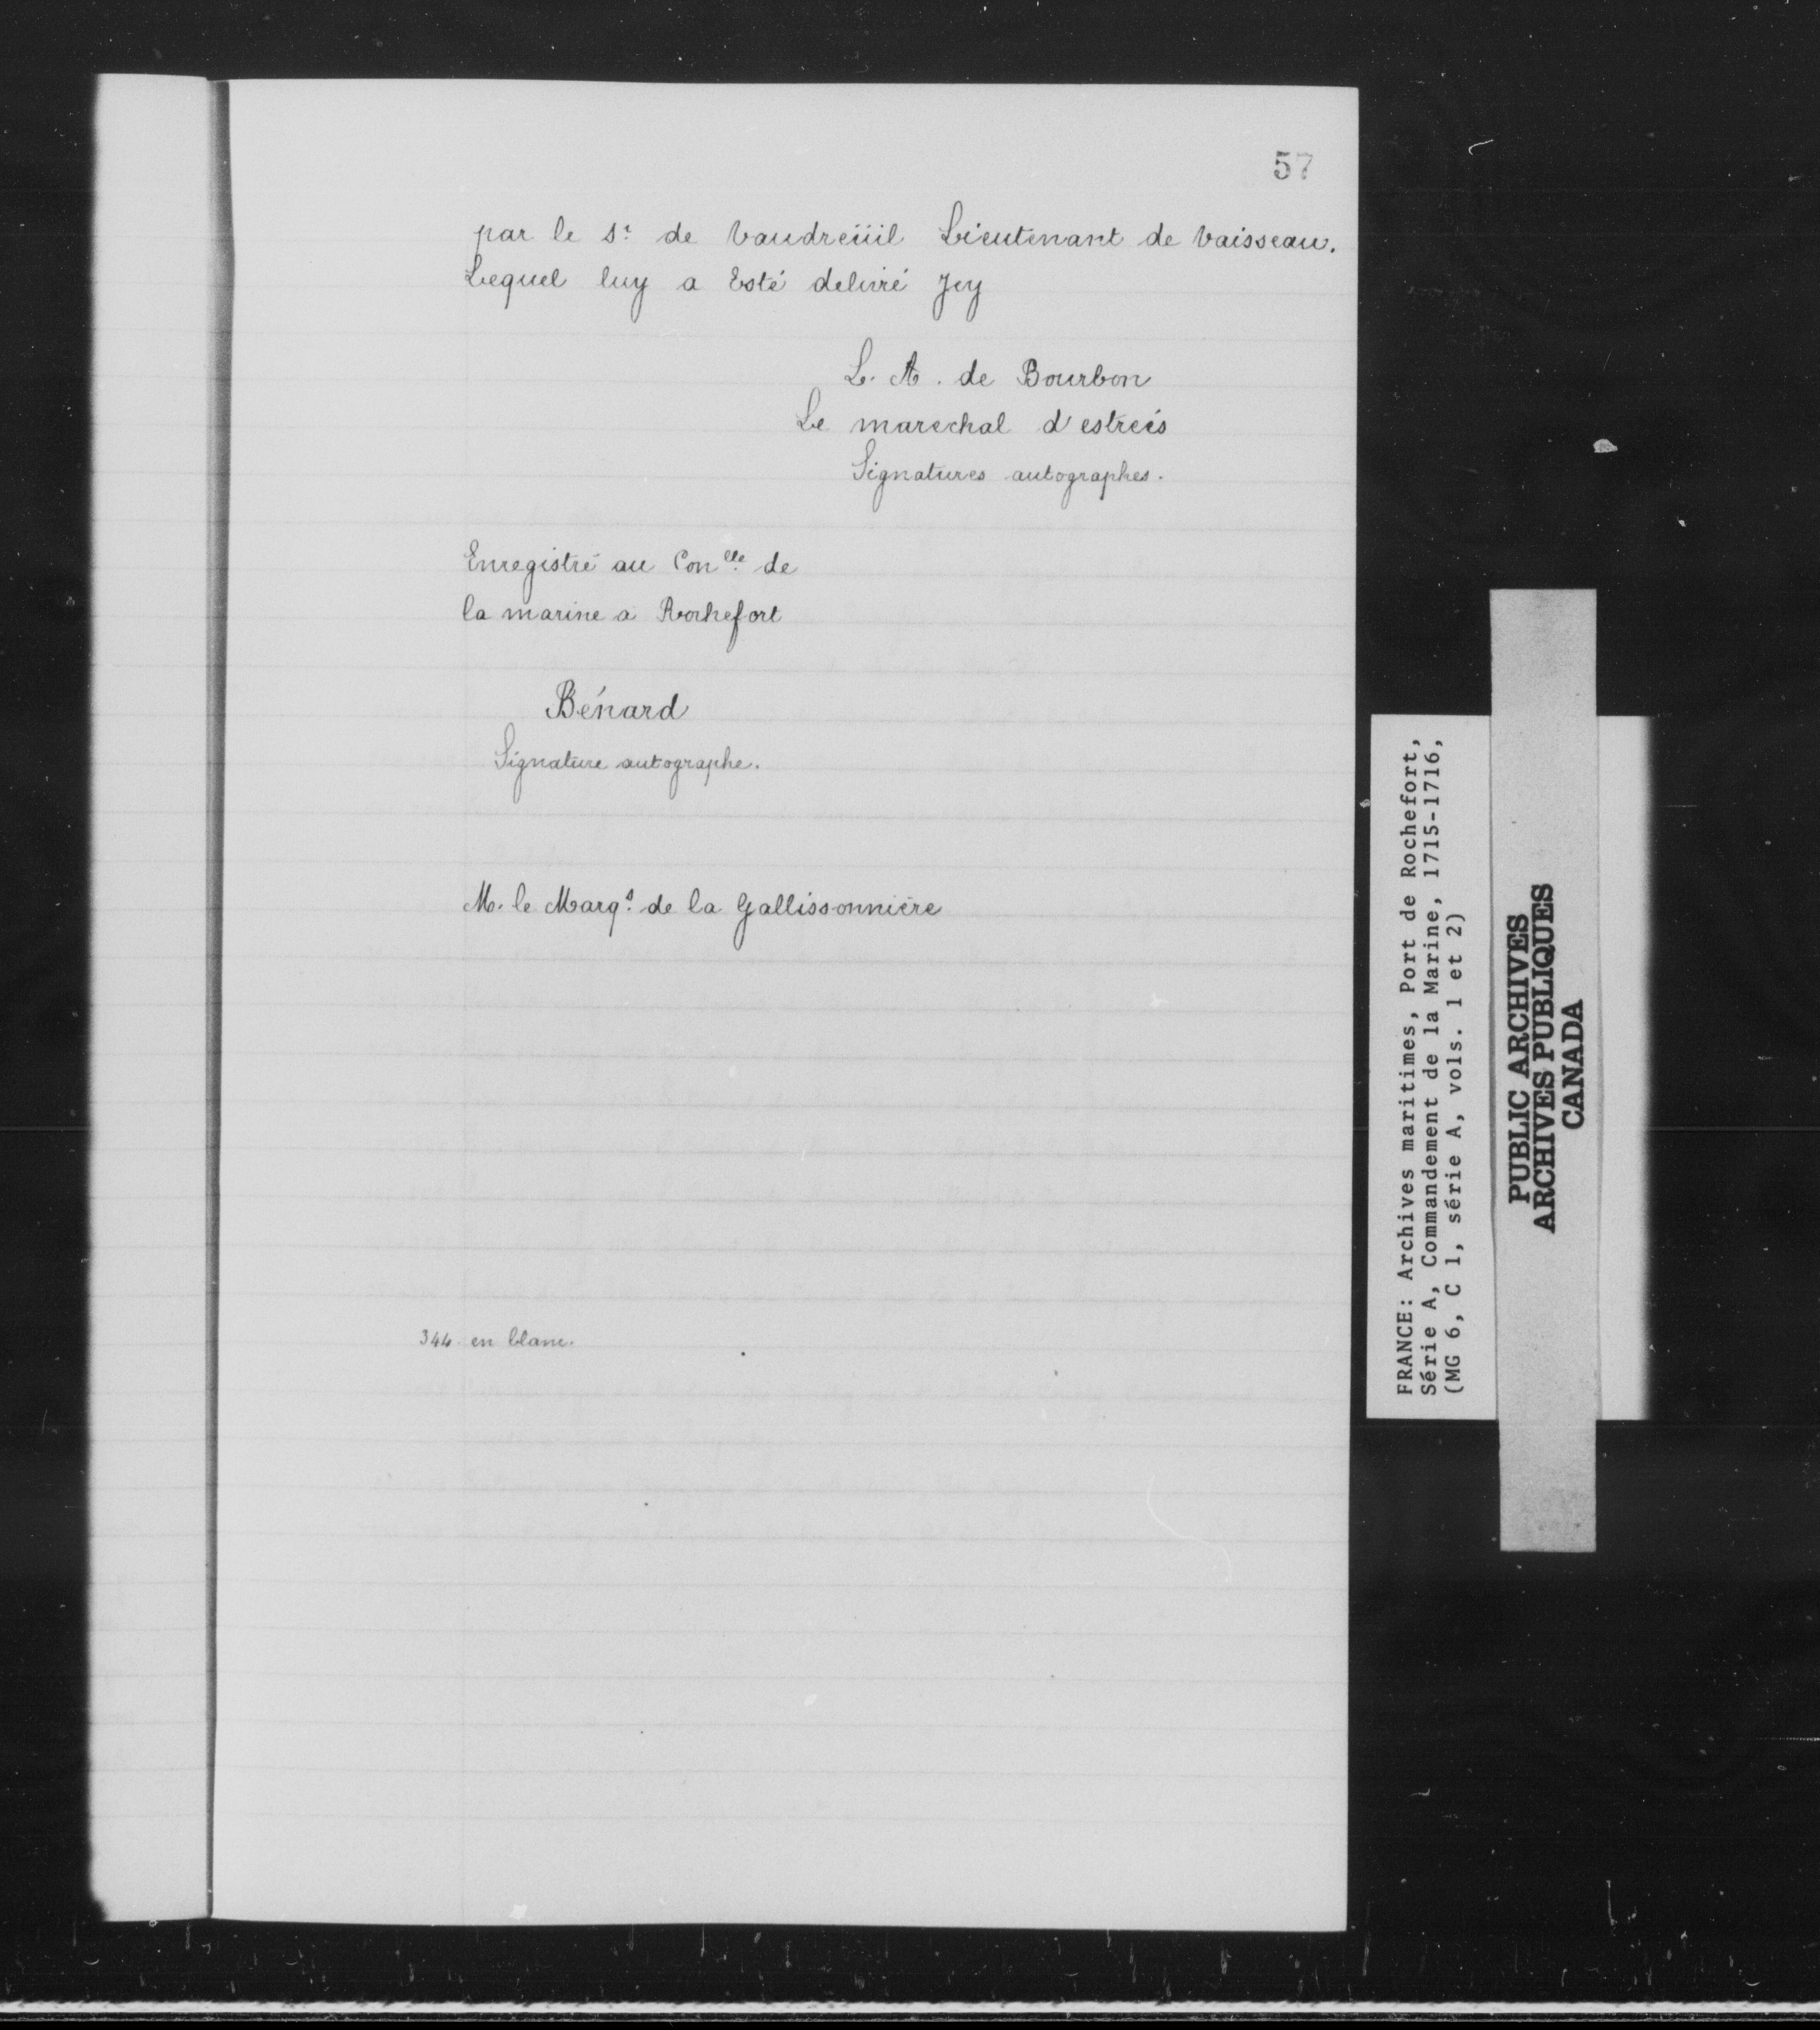 57
par le Sr. de Vaudreüil Lieutenant de Vaisseau.
Lequel luy a Esté delivré Jcy
L. A. de Bourbon
Le marechal d'estreés
Signatures autographes.
Enregistré au Conelle de
la marine a Rochefort
Bénard
Signature autographe.
M. le Marqs. de la Gallissonnière
344 en blanc.
FRANCE: Archives maritimes, Port de Rochefort,
Série A, Commandement de la Marine, 1715-1716,
(MG 6, C 1, série A, vols. 1 et 2)
PUBLIC ARCHIVES
ARCHIVES PUBLIQUES
CANADA